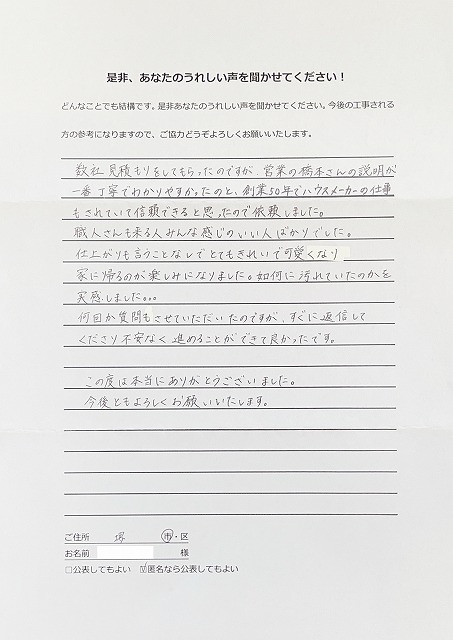 是非、あなたのうれしい声を聞かせてください！
どんなことでも結構です。是非あなたのうれしい声を聞かせてください。今後の工事される
方の参考になりますので、ご協力どうぞよろしくお願いいたします。
数社見積もりをしてもらったのですが、営業の橋本さんの説明が
一番丁寧でわかりやすかったのと、創業50年でハウスメーカーの仕事
もされていて信頼できると思ったので依頼しました。
職人さんも来る人みんな感じのいい人ばかりでした。
仕上がりも言うことなしでとてもきれいで可愛くなり
家に帰るのが楽しみになりました。如何に汚れていたのかを
実感しました。。。
何回か質問もさせていただいたのですが、すぐに返信して
くださり不安なく進めることができて良かったです。
この度は本当にありがとうございました。
今後ともよろしくお願いいたします。
ご住所 堺 市・区
お名前 様
□公表してもよい ☑匿名なら公表してもよい